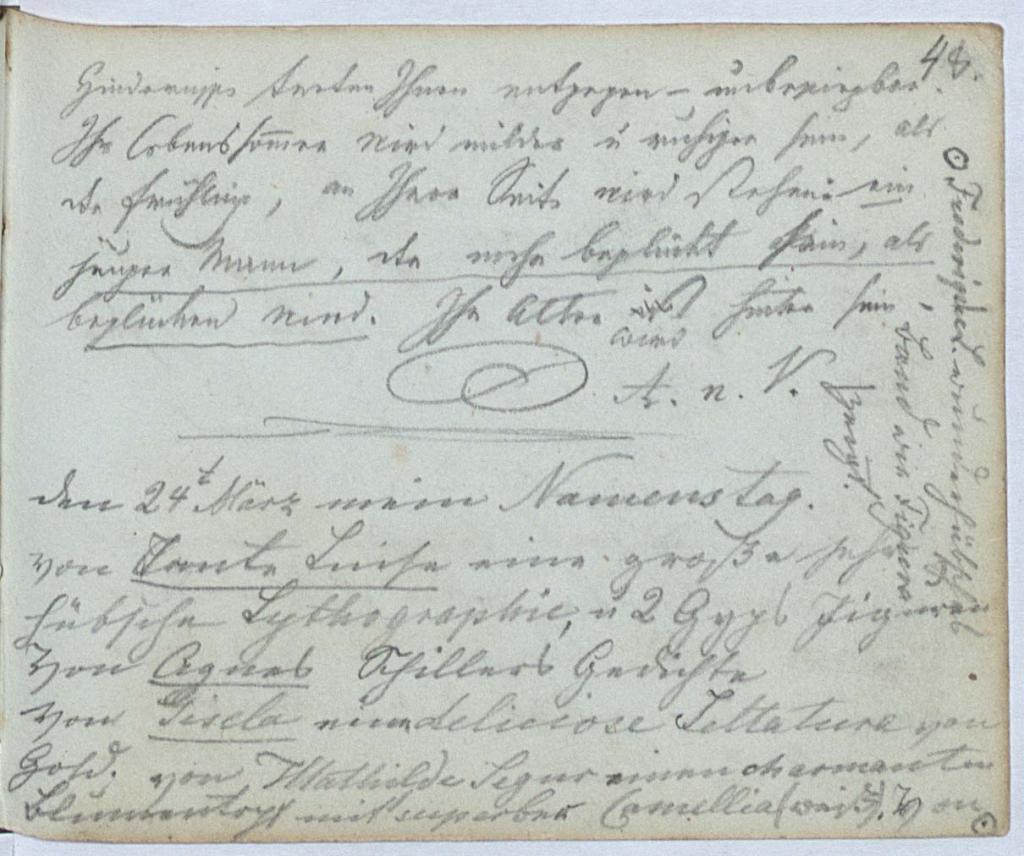 48.
Hindernisse treten Ihnen entgegen – unbesiegbar.
Ihr Lebenssommer wird milder u ruhiger sein, als
der Frühling, an Ihrer Seite wird stehen: ein
junger Mann, der mehr beglückt sein, als
beglücken wird. Ihr Alter wird heiter sein
A. n. V.
den 24t März mein Namenstag.
von Tante Luise eine große sehr
hübsche Lythographie, u 2 Gyps Figuren
Von Agnes Schillers Gedichte
von Gisela eine deliciose Jettatura von
Gold. von Mathilde Segur einen charmanten
Blumentopf mit superber Camellia (weiß). Von
wunderhübschen
Band wie Figura
zeigt.